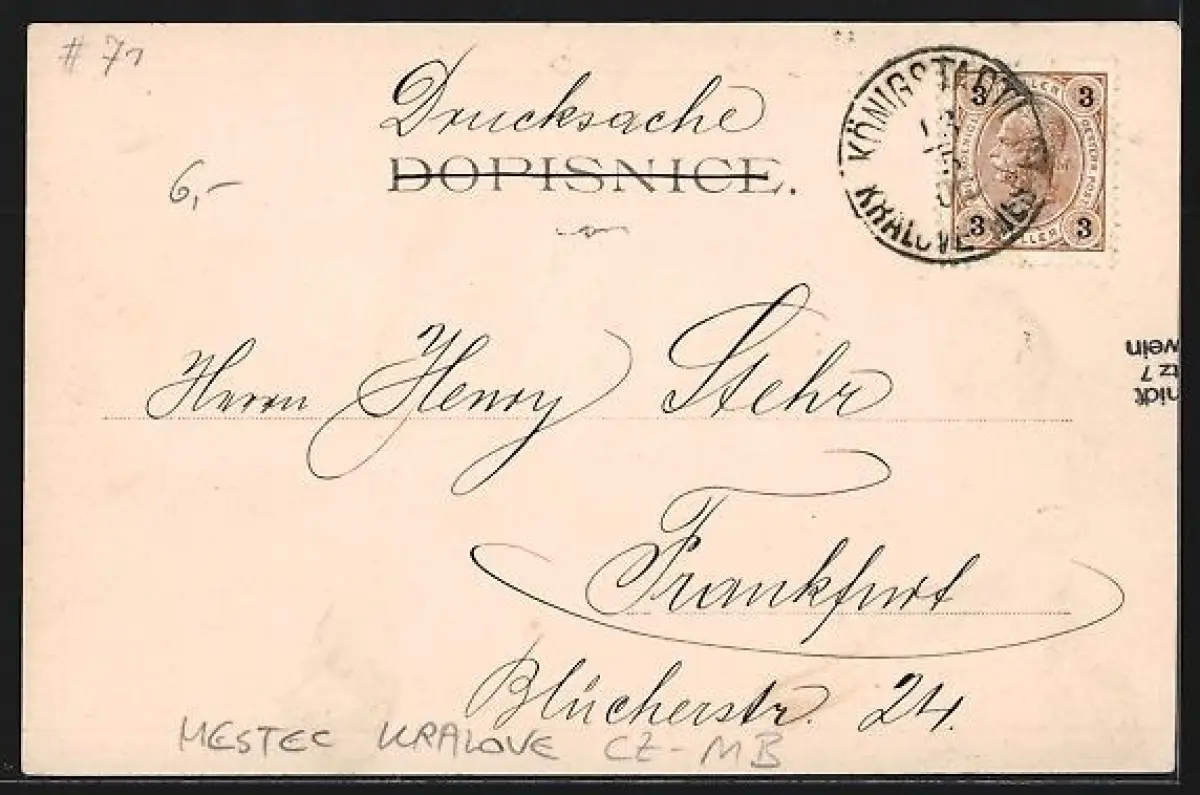 # 71
Drucksache
DOPISNICE.
6,-
KÖNIGSTADTL
KRÁLOVÉ MĚSTEC
3 3
3 3
HELLER
Herrn Henry Stehr
Frankfurt
Blücherstr. 24.
MESTEC KRALOVE CZ-MB
nidt
tz 7
wein